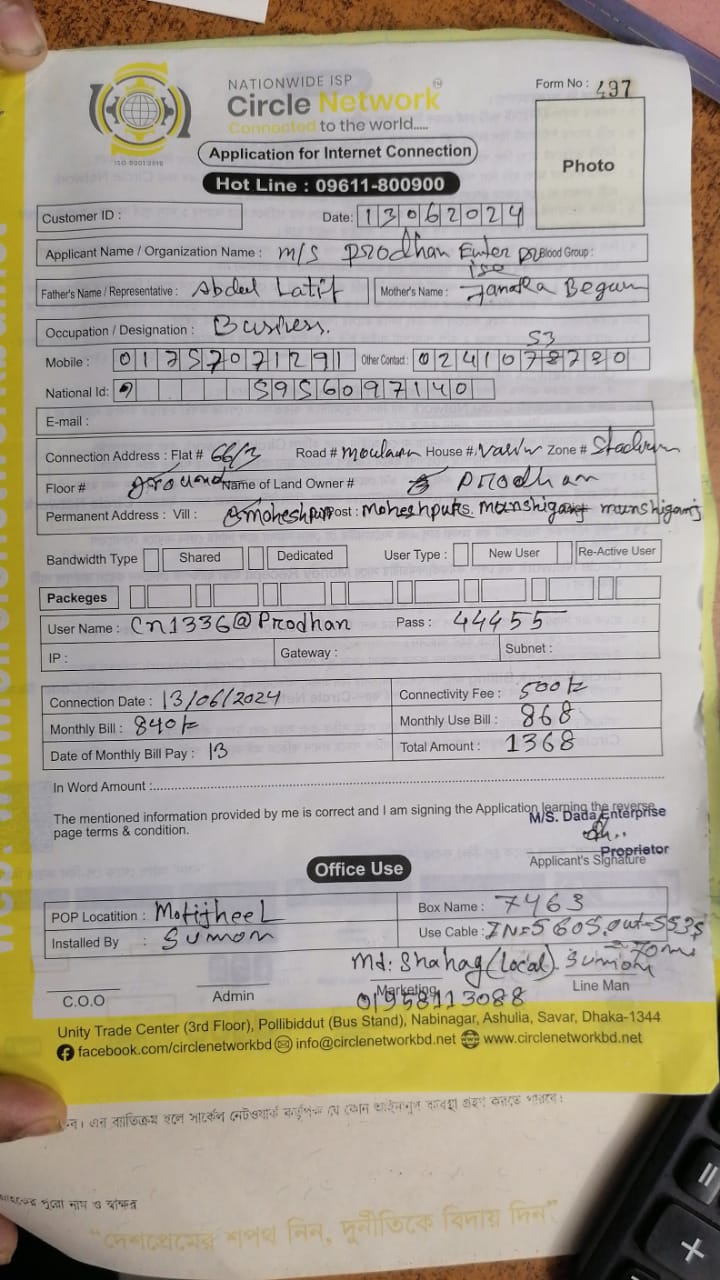 NATIONWIDE ISP
Circle Network
Connected to the world.....
ISO 9001:2015
Form No : 497
Application for Internet Connection
Photo
Hot Line : 09611-800900
Customer ID :
Date: 13062024
Applicant Name / Organization Name : M/S Prodhan Enter pr Blood Group :
ise
Father's Name / Representative : Abdul Latif Mother's Name : Begum
Occupation / Designation : Business.
53
Mobile : 01757071291 Other Contact : 0241078720
National Id: 5956097140
E-mail :
Connection Address : Flat # 66/2 Road # House # Zone # Stadium
Floor # ground Name of Land Owner # Prodhan
Permanent Address : Vill : Moheshpur Post : Moheshpur. Munshiganj munshiganj
Bandwidth Type Shared Dedicated User Type : New User Re-Active User
Packeges
User Name : Cn1336@Prodhan Pass : 44455
IP : Gateway : Subnet :
Connection Date : 13/06/2024 Connectivity Fee : 500/=
Monthly Bill : 840/= Monthly Use Bill : 868
Date of Monthly Bill Pay : 13 Total Amount : 1368
In Word Amount :
The mentioned information provided by me is correct and I am signing the Application learning the reverse
page terms & condition.
M/S. Dada Enterprise
Proprietor
Applicant's Signature
Office Use
POP Locatition : Motijheel Box Name : 7463
Installed By : Sumon Use Cable : IN=5605, Out=5535
= 70m
Md: Shahag (Local). Sumon
C.O.O Admin Marketing Line Man
01958113088
Unity Trade Center (3rd Floor), Pollibiddut (Bus Stand), Nabinagar, Ashulia, Savar, Dhaka-1344
facebook.com/circlenetworkbd info@circlenetworkbd.net www.circlenetworkbd.net
এর ব্যতিক্রম হলে সার্কেল নেটওয়ার্ক কর্তৃপক্ষ যে কোন আইনানুগ ব্যবস্থা গ্রহণ করতে পারবে।
পুরো নাম ও স্বাক্ষর
“দেশপ্রেমের শপথ নিন, দুর্নীতিকে বিদায় দিন”